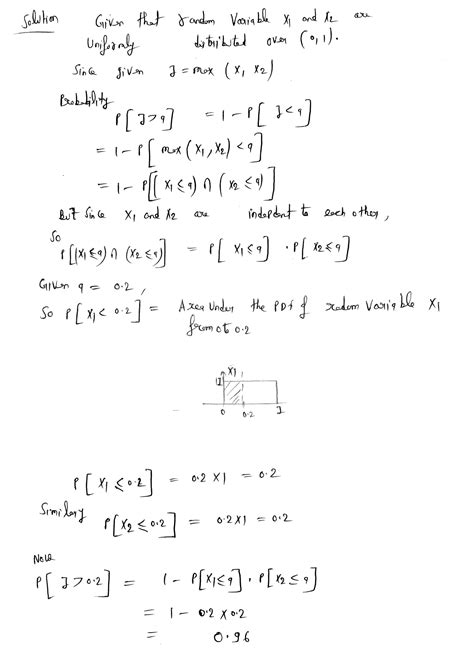 Solution Given that random Variable X1 and X2 are
Uniformly distributed over (0,1).
Since given J = max (X1, X2)
Probability
P[J>9] = 1-P[J<9]
= 1-P[max(X1,X2)<9]
= 1-P[[X1≤9) ∩ (X2≤9)]
But Since X1 and X2 are indepdent to each other,
So
P[(X1≤9) ∩ (X2≤9)] = P[X1≤9] · P[X2≤9]
Given 9 = 0.2,
So P[X1<0.2] = Area Under the PDf of random Variable X1
from 0 to 0.2
X1
1
0 0.2 1
P[X1≤0.2] = 0.2 X1 = 0.2
Similary P[X2≤0.2] = 0.2X1 = 0.2
Now
P[J>0.2] = 1 - P[X1≤9] · P[X2≤9]
= 1 - 0.2 X 0.2
= 0.96